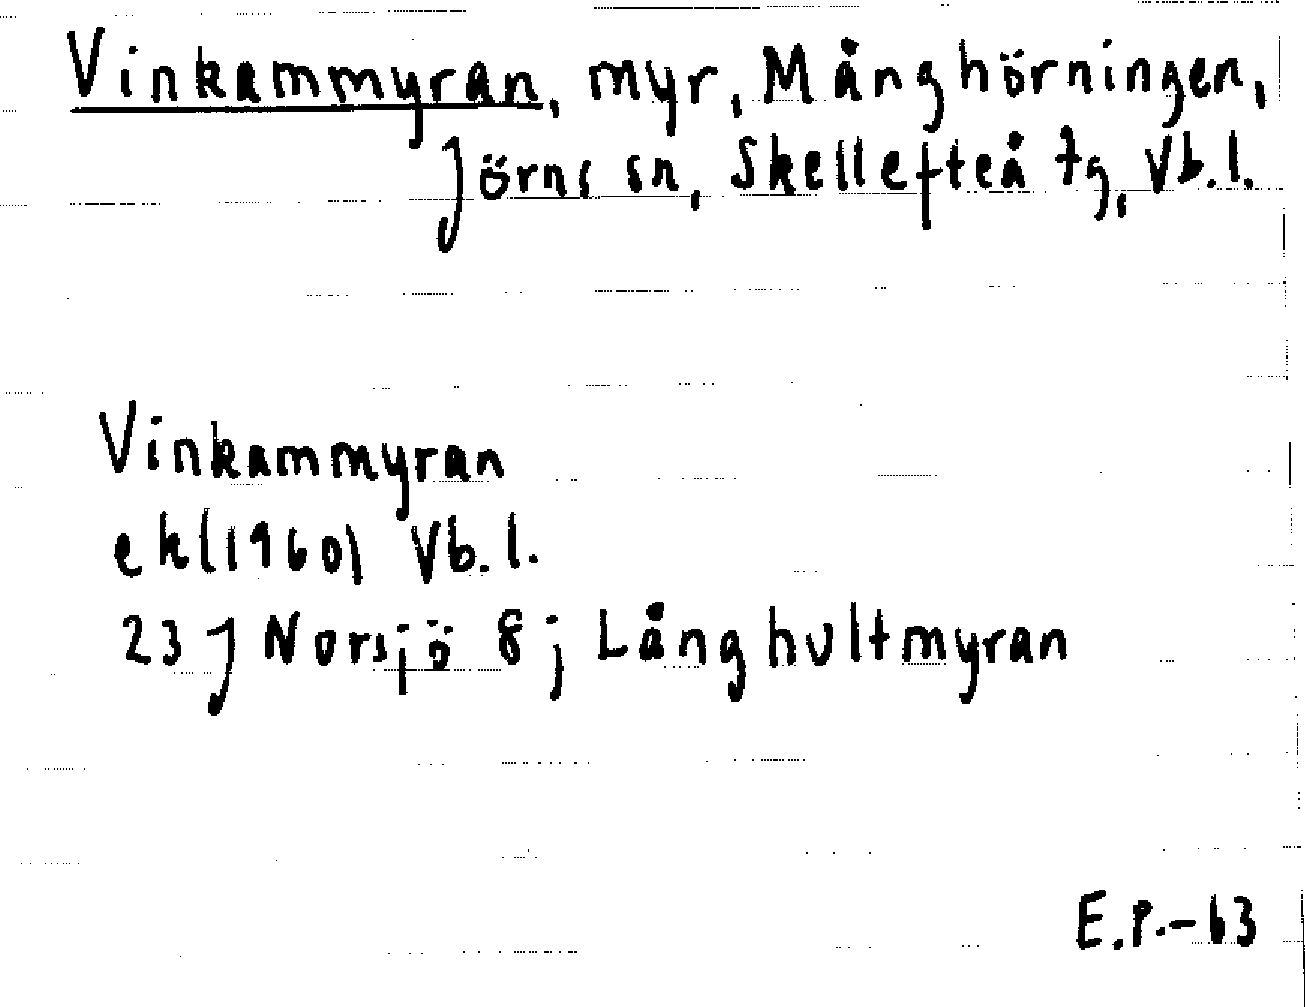 Vinkammyran, myr, Månghörningen,
Jörns sn, Skellefteå tg, Vb.l.
Vinkammyran
ek(1960) Vb.l.
23 J Norsjö 8 j Långhultmyran
E.P.-63